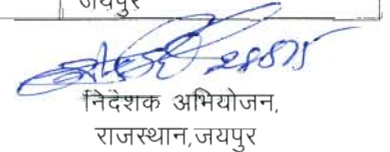 जयपुर
निदेशक अभियोजन,
राजस्थान,जयपुर